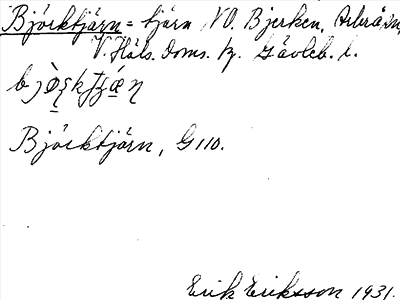 Björktjärn = tjärn NO. Bjerken, Arbrå sn,
V. Häls. Doms. Kr. Gävleb. l.
Björktjärn, G 110.
Erik Eriksson 1931.